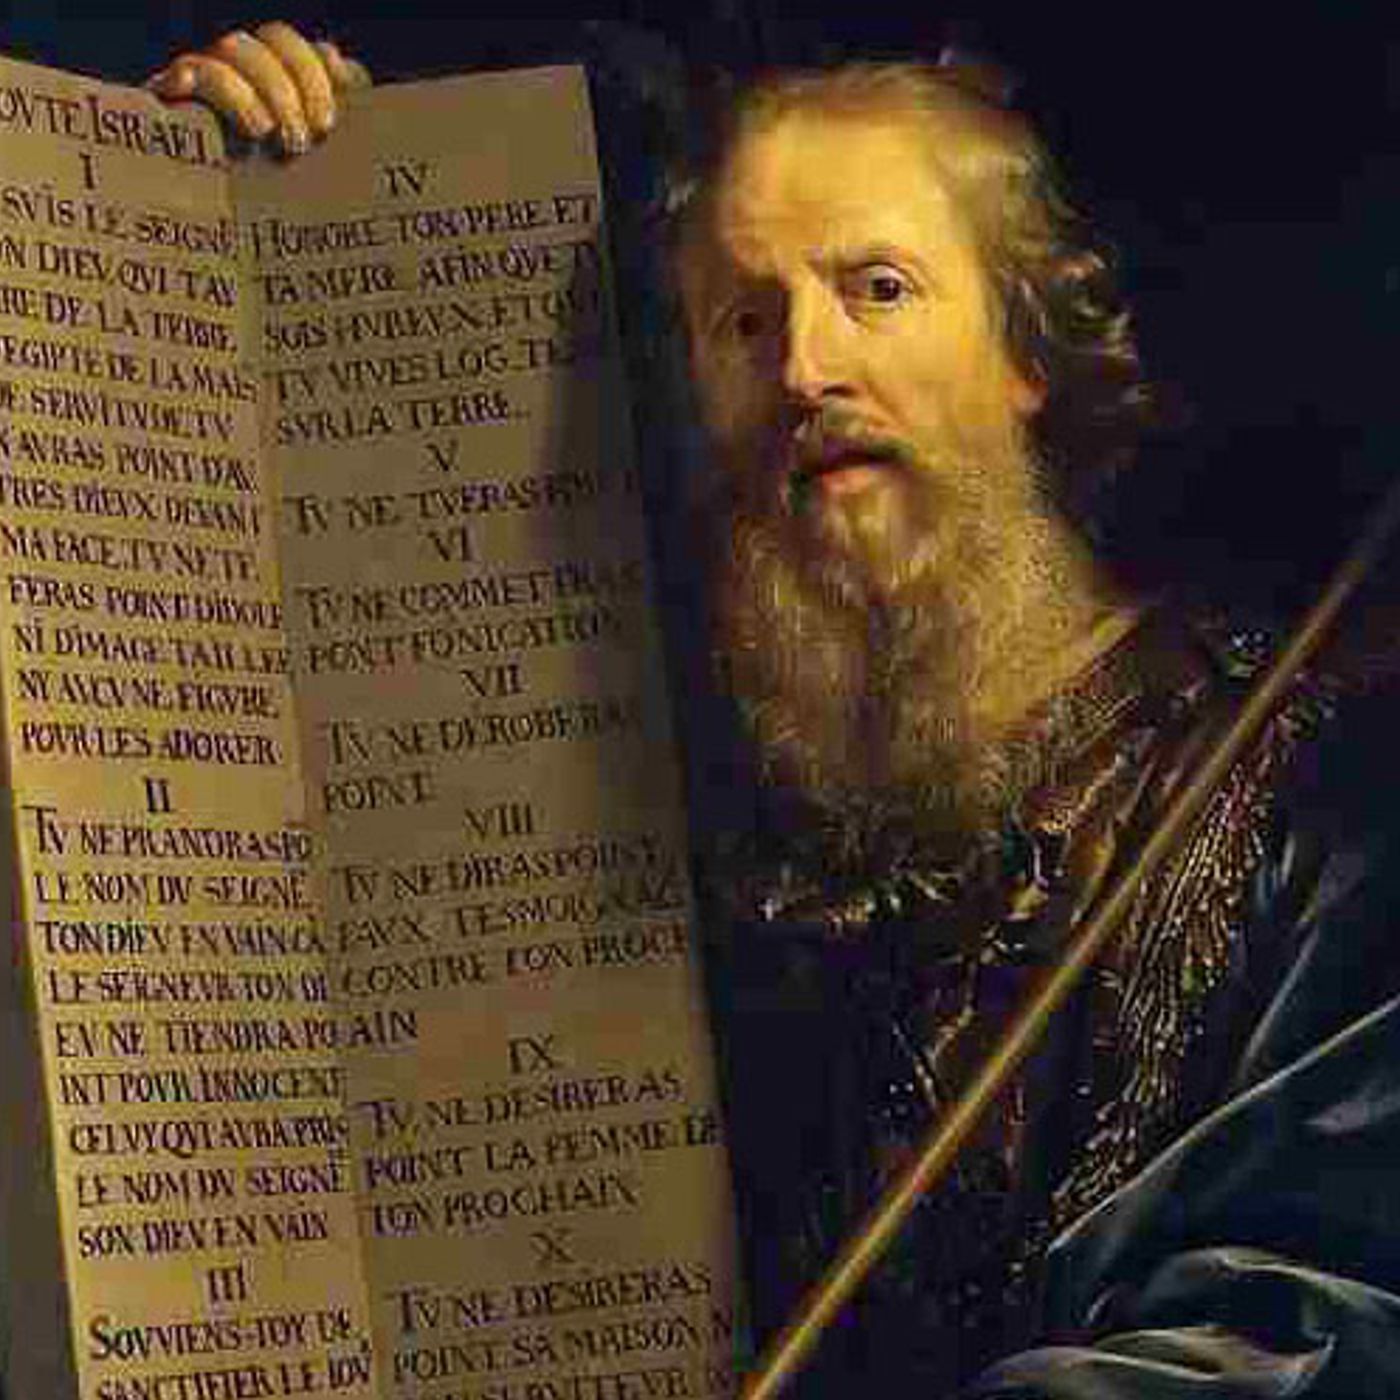 OVTE ISRAEL.
I
SVIS LE SEIGNE
ON DIEV, QVI T'AY
RE DE LA TERRE
EGIPTE DE LA MAIS
DE SERVITVDE. TV
N'AVRAS POINT D'AV
TRES DIEVX DEVANT
MA FACE. TV NE TE
FERAS POINT D'IDOLE
NI D'IMAGE TAILLEE
NY AVCVNE FIGVRE
POVR LES ADORER.
II
TV NE PRANDRAS PO
LE NOM DV SEIGNE
TON DIEV EN VAIN CA
LE SEIGNEVR TON DI
EV NE TIENDRA PO
INT POVR INNOCENT
CELVY QVI AVRA PRIS
LE NOM DV SEIGNE
SON DIEV EN VAIN
III
SOVVIENS-TOY DE
SANCTIFIER LE IOV
IV
HONORE TON PERE ET
TA MERE AFIN QVE TV
SOIS HVREVX, ET QV
TV VIVES LOG TE
SVR LA TERRE.
V
TV NE TVERAS
VI
TV NE COMMETTRAS
POINT FONICATION
VII
TV NE DEROBERAS
POINT
VIII
TV NE DIRAS POINT
FAVX TESMOIGNAGE
CONTRE TON PROCH
AIN
IX
TV NE DESIRERAS
POINT LA FEMME DE
TON PROCHAIN
X
TV NE DESIRERAS
POINT SA MAISON N
SERVITEVR